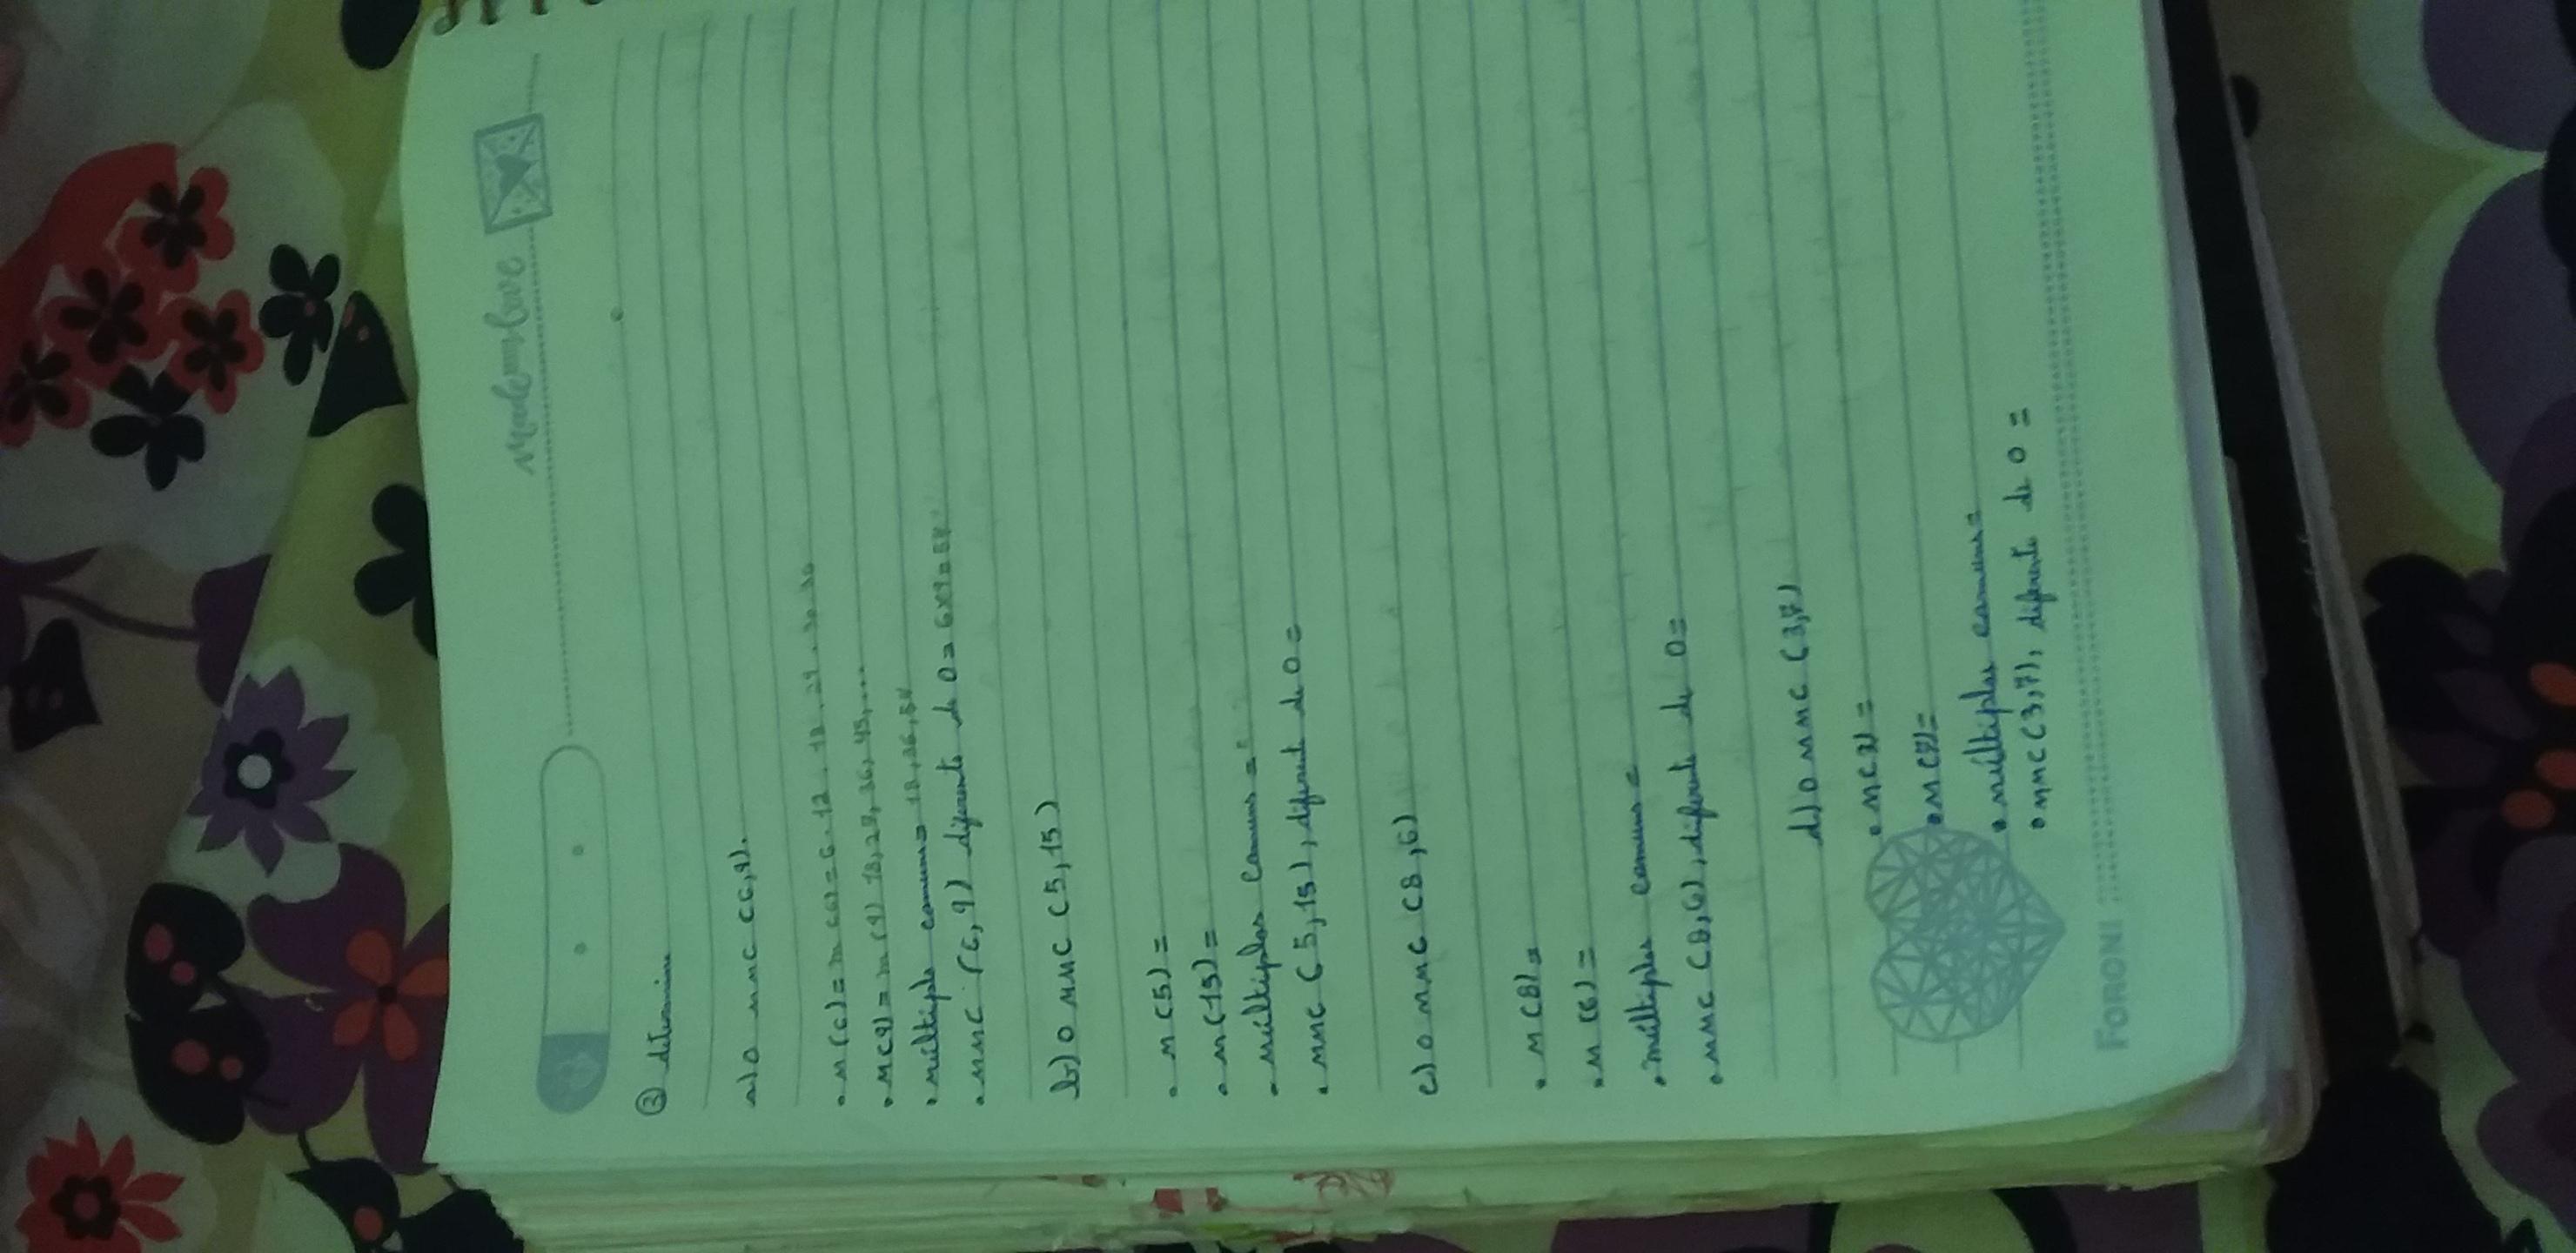 Madembore
③ determine
a) o mmc (6,9).
• M(6) = m(6) = 6. 12. 18. 24. 30. 36
• M(9) = m(9) 18, 27, 36, 45, ...
• múltiplo comuns = 18, 36, 54
• mmc (6, 9) diferente de 0 = 6x9=54
b) o mmc (5,15)
• M(5) =
• M(15) =
• múltiplos comuns =
• mmc (5,15), diferente de 0 =
c) o mmc (8,6)
• M(8) =
• M(6) =
• múltiplos comuns =
• mmc (8,6), diferente de 0=
d) o mmc (3,7)
• M(3) =
• M(7)=
• múltiplos comuns=
• mmc (3,7), diferente de 0 =
FORONI